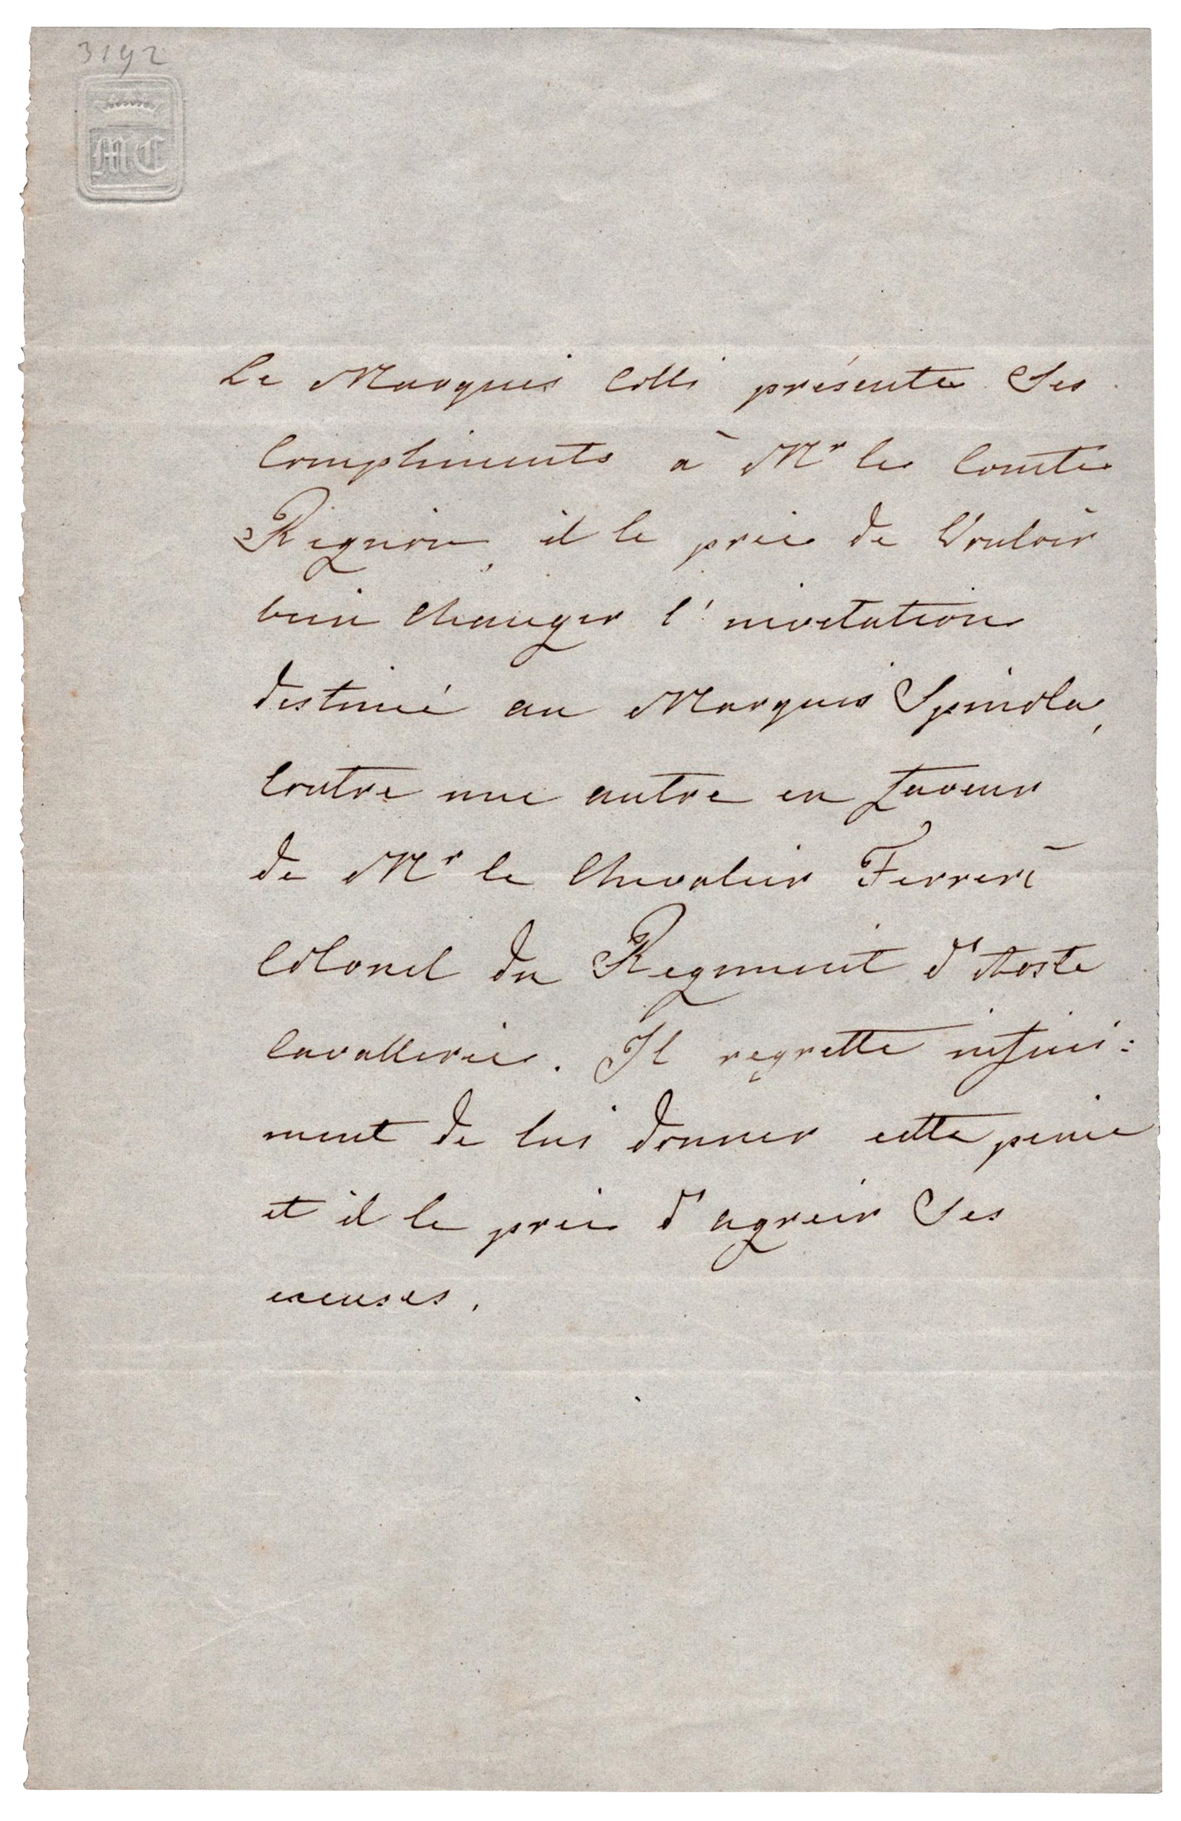 3192
MC
Le Marquis Colli présente Ses
Compliments à Mr le Comte
Rignon, il le prie de Vouloir
bien Changer l'invitation
destiné au Marquis Spinola,
Contre une autre en faveur
de Mr le Chevalier Ferreri
Colonel du Regiment d'Aoste
Cavallerie. Il regrette infini:
ment de lui donner cette peine
et il le prie d'agréer Ses
excuses.